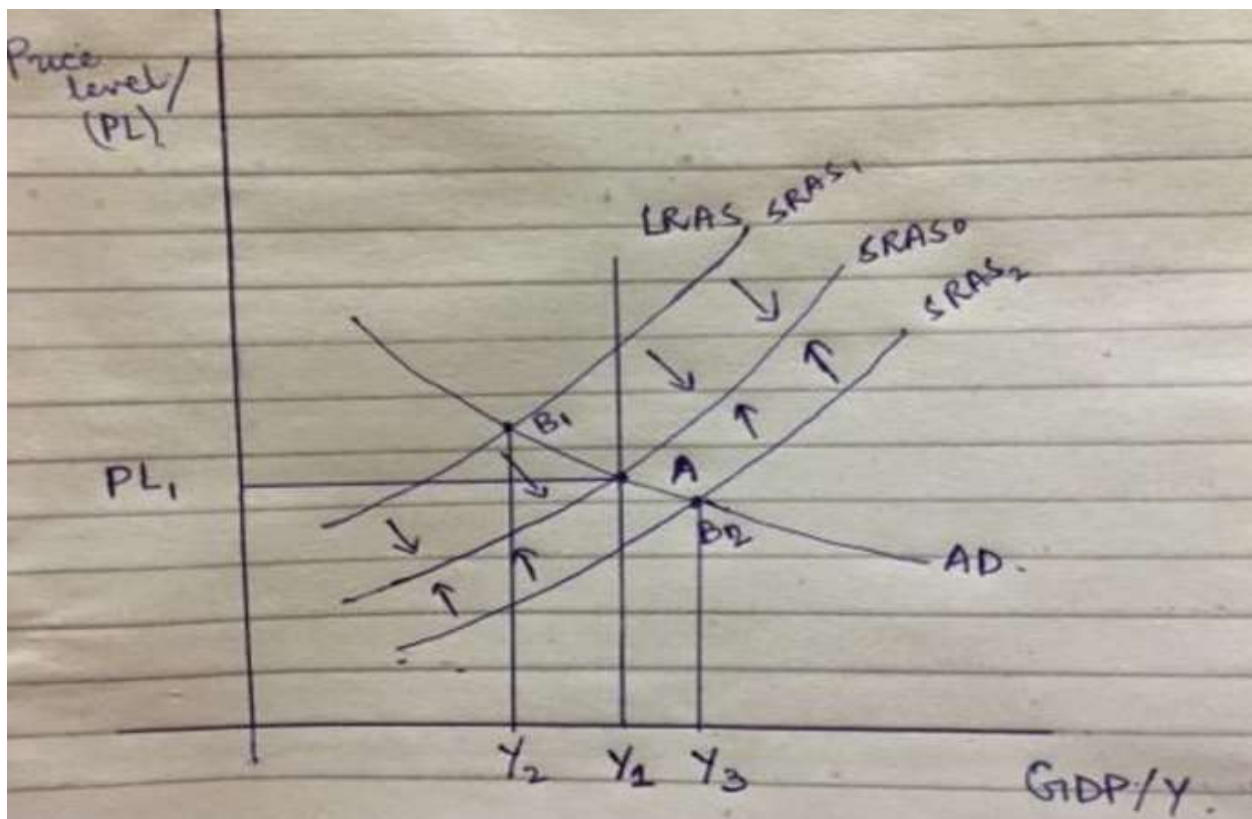 Price
level/
(PL)
LRAS
SRAS1
SRAS0
SRAS2
B1
PL1
A
B2
AD.
Y2
Y1
Y3
GDP/Y.